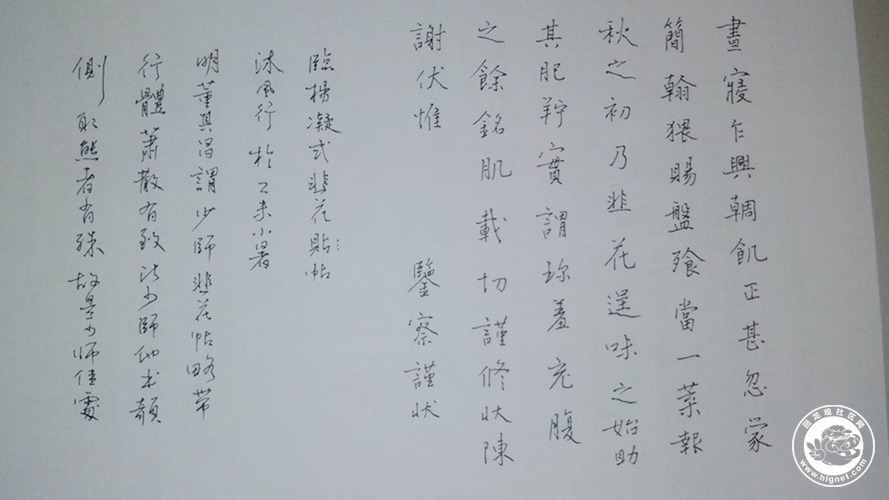 晝寢乍興輖飢正甚忽蒙
簡翰猥賜盤飧當一葉報
秋之初乃韭花逞味之始助
其肥羜實謂珍羞充腹
之餘銘肌載切謹修狀陳
謝伏惟 鑒察謹狀
臨楊凝式韭花貼帖
沐風行於乙未小暑
明董其昌謂少師韭花帖略帶
行體蕭散有致 比少師他書欹
側取態者有殊 故是少師佳處
回龙观社区网
www.hlgnet.com